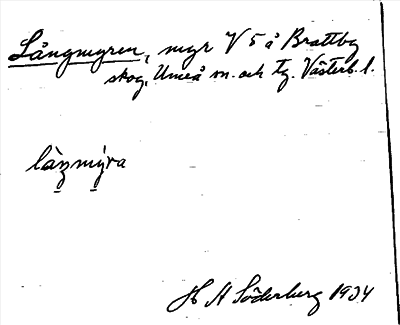 Långmyren, myr V 5 å Brattby
skog, Umeå m. och tg. Västerb. l.
làŋmýra
H A Söderberg 1934